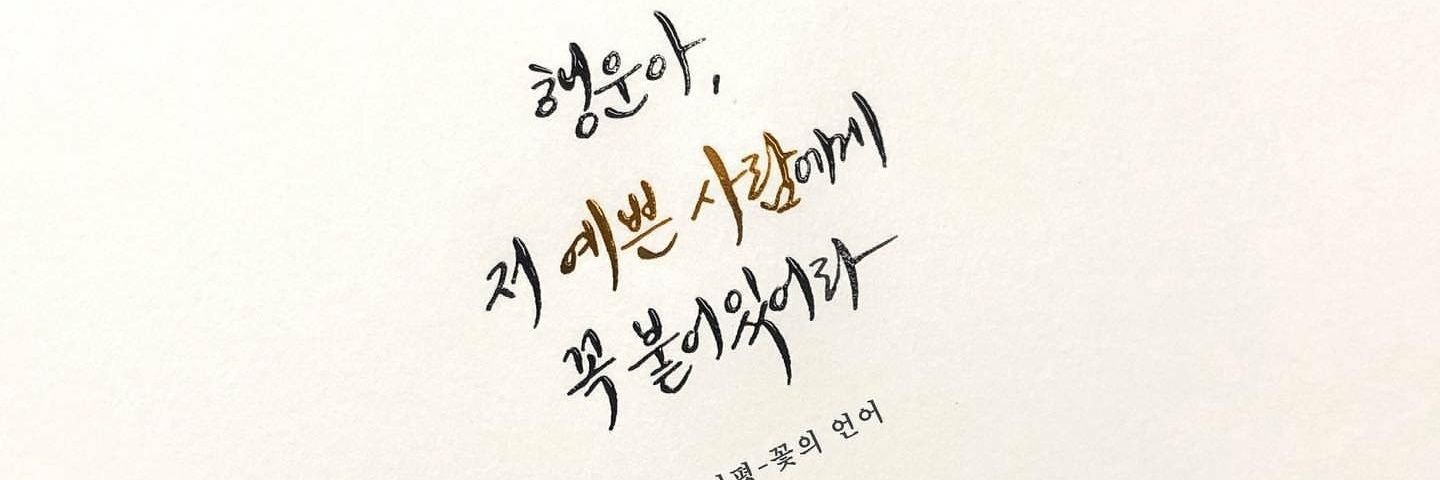 행운아,
저 예쁜 사람에게
꼭 붙어있어라
꽃의 언어